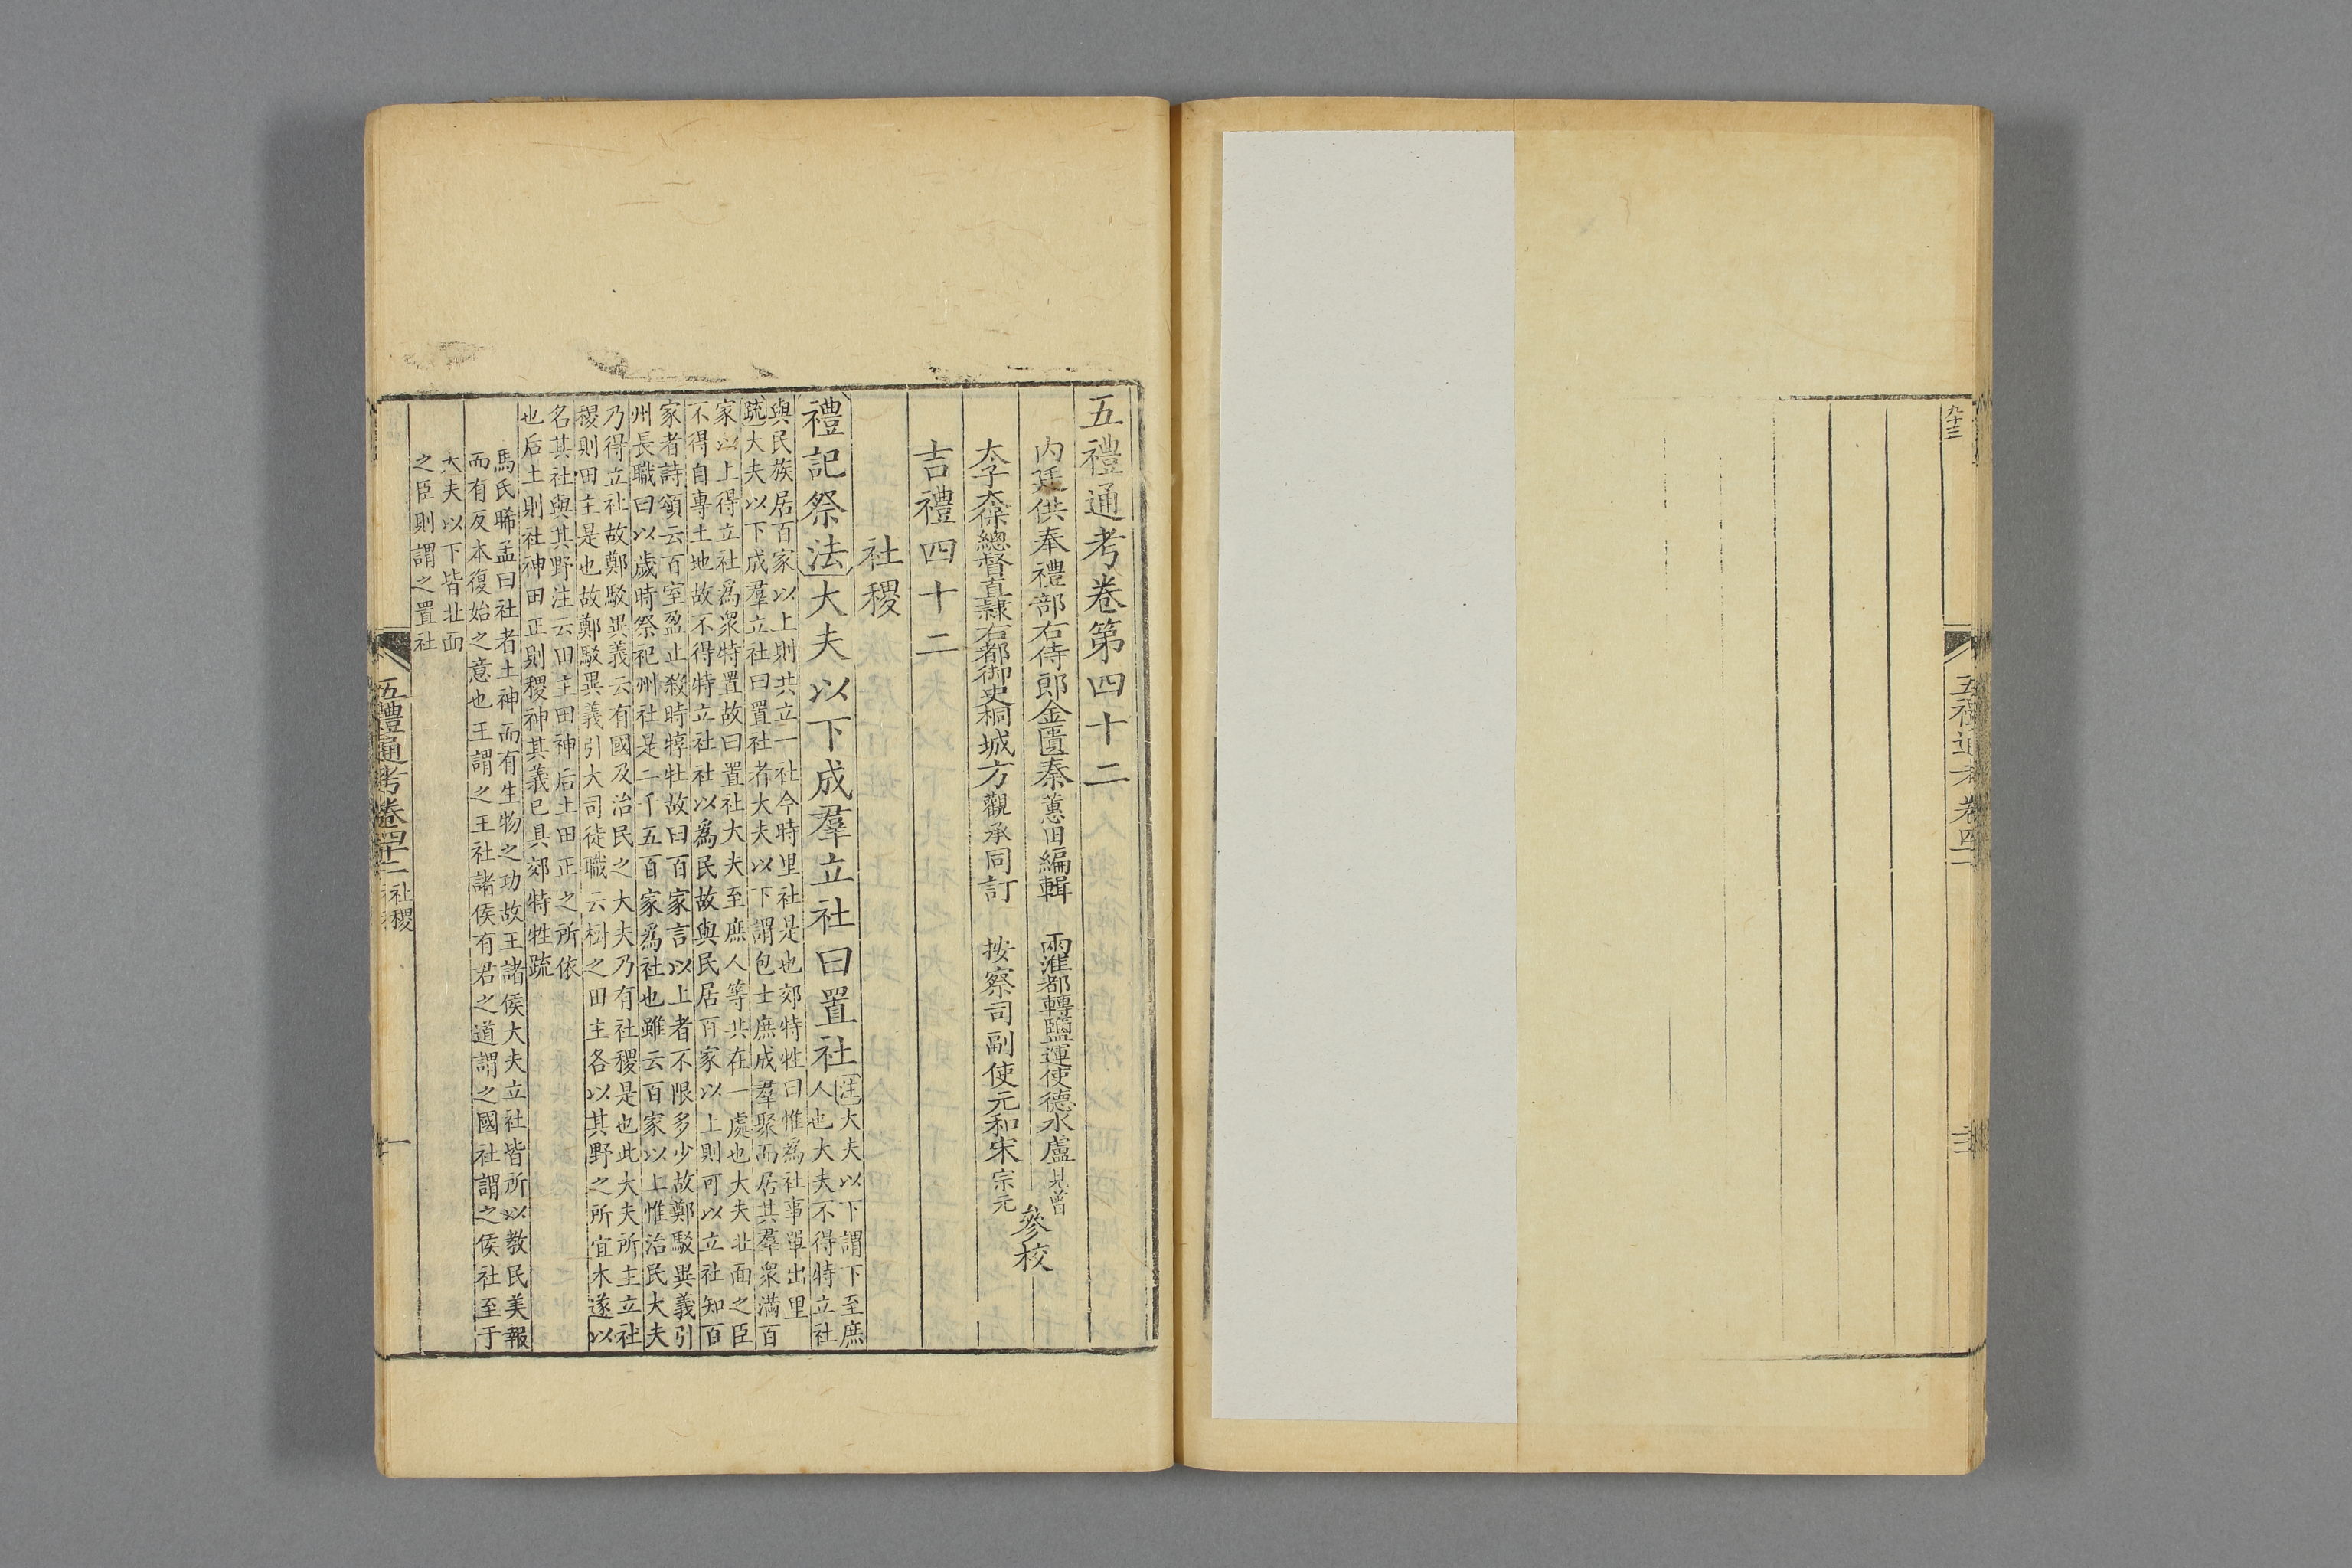 五禮通考卷第四十二
內廷供奉禮部右侍郎金匱秦蕙田編輯　兩淮都轉鹽運使德水盧見曾
太子太保總督直隸右都御史桐城方觀承同訂　按察司副使元和宋宗元
參校
吉禮四十二
社稷
禮記祭法大夫以下成羣立社曰置社
注大夫以下謂下至庶
人也大夫不得特立社
與民族居百家以上則共立一社今時里社是也郊特牲曰惟爲社事單出里
疏大夫以下成羣立社曰置社者大夫以下謂包士庶成羣聚而居其羣衆滿百
家以上得立社爲衆特置故曰置社大夫至庶人等共在一處也大夫北面之臣
不得自專土地故不得特立社社以爲民故與民居百家以上則可以立社知百
家者詩頌云百室盈止殺時犉牡故曰百家言以上者不限多少故鄭駁異義引
州長職曰以歲時祭祀州社是二千五百家爲社也雖云百家以上惟治民大夫
乃得立社故鄭駁異義云有國及治民之大夫乃有社稷是也此大夫所主立社
稷則田主是也故鄭駁異義引大司徒職云樹之田主各以其野之所宜木遂以
名其社與其野注云田主田神后土田正之所依
也后土則社神田正則稷神其義已具郊特牲疏
馬氏晞孟曰社者土神而有生物之功故王諸侯大夫立社皆所以教民美報
而有反本復始之意也王謂之王社諸侯有君之道謂之國社謂之侯社至于
大夫以下皆北面
之臣則謂之置社
五禮通考卷四十二　社稷
一
九十三
五禮通考卷四十一